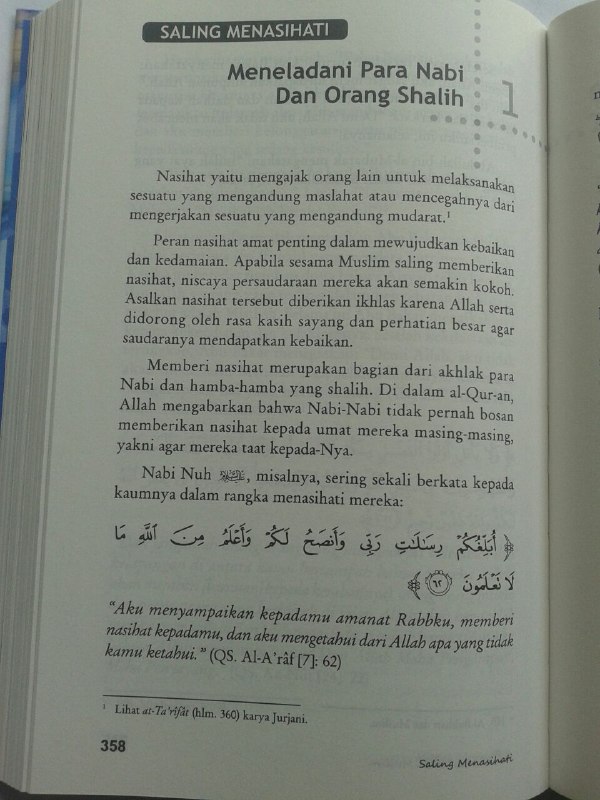 SALING MENASIHATI
1
Meneladani Para Nabi
Dan Orang Shalih
Nasihat yaitu mengajak orang lain untuk melaksanakan
sesuatu yang mengandung maslahat atau mencegahnya dari
mengerjakan sesuatu yang mengandung mudarat.¹
Peran nasihat amat penting dalam mewujudkan kebaikan
dan kedamaian. Apabila sesama Muslim saling memberikan
nasihat, niscaya persaudaraan mereka akan semakin kokoh.
Asalkan nasihat tersebut diberikan ikhlas karena Allah serta
didorong oleh rasa kasih sayang dan perhatian besar agar
saudaranya mendapatkan kebaikan.
Memberi nasihat merupakan bagian dari akhlak para
Nabi dan hamba-hamba yang shalih. Di dalam al-Qur-an,
Allah mengabarkan bahwa Nabi-Nabi tidak pernah bosan
memberikan nasihat kepada umat mereka masing-masing,
yakni agar mereka taat kepada-Nya.
Nabi Nuh , misalnya, sering sekali berkata kepada
kaumnya dalam rangka menasihati mereka:
﴿ أُبَلِّغُكُمْ رِسَٰلَٰتِ رَبِّى وَأَنصَحُ لَكُمْ وَأَعْلَمُ مِنَ ٱللَّهِ مَا
لَا تَعْلَمُونَ ٦٢ ﴾
“Aku menyampaikan kepadamu amanat Rabbku, memberi
nasihat kepadamu, dan aku mengetahui dari Allah apa yang tidak
kamu ketahui.” (QS. Al-A’râf [7]: 62)
¹ Lihat at-Ta’rîfât (hlm. 360) karya Jurjani.
358
Saling Menasihati